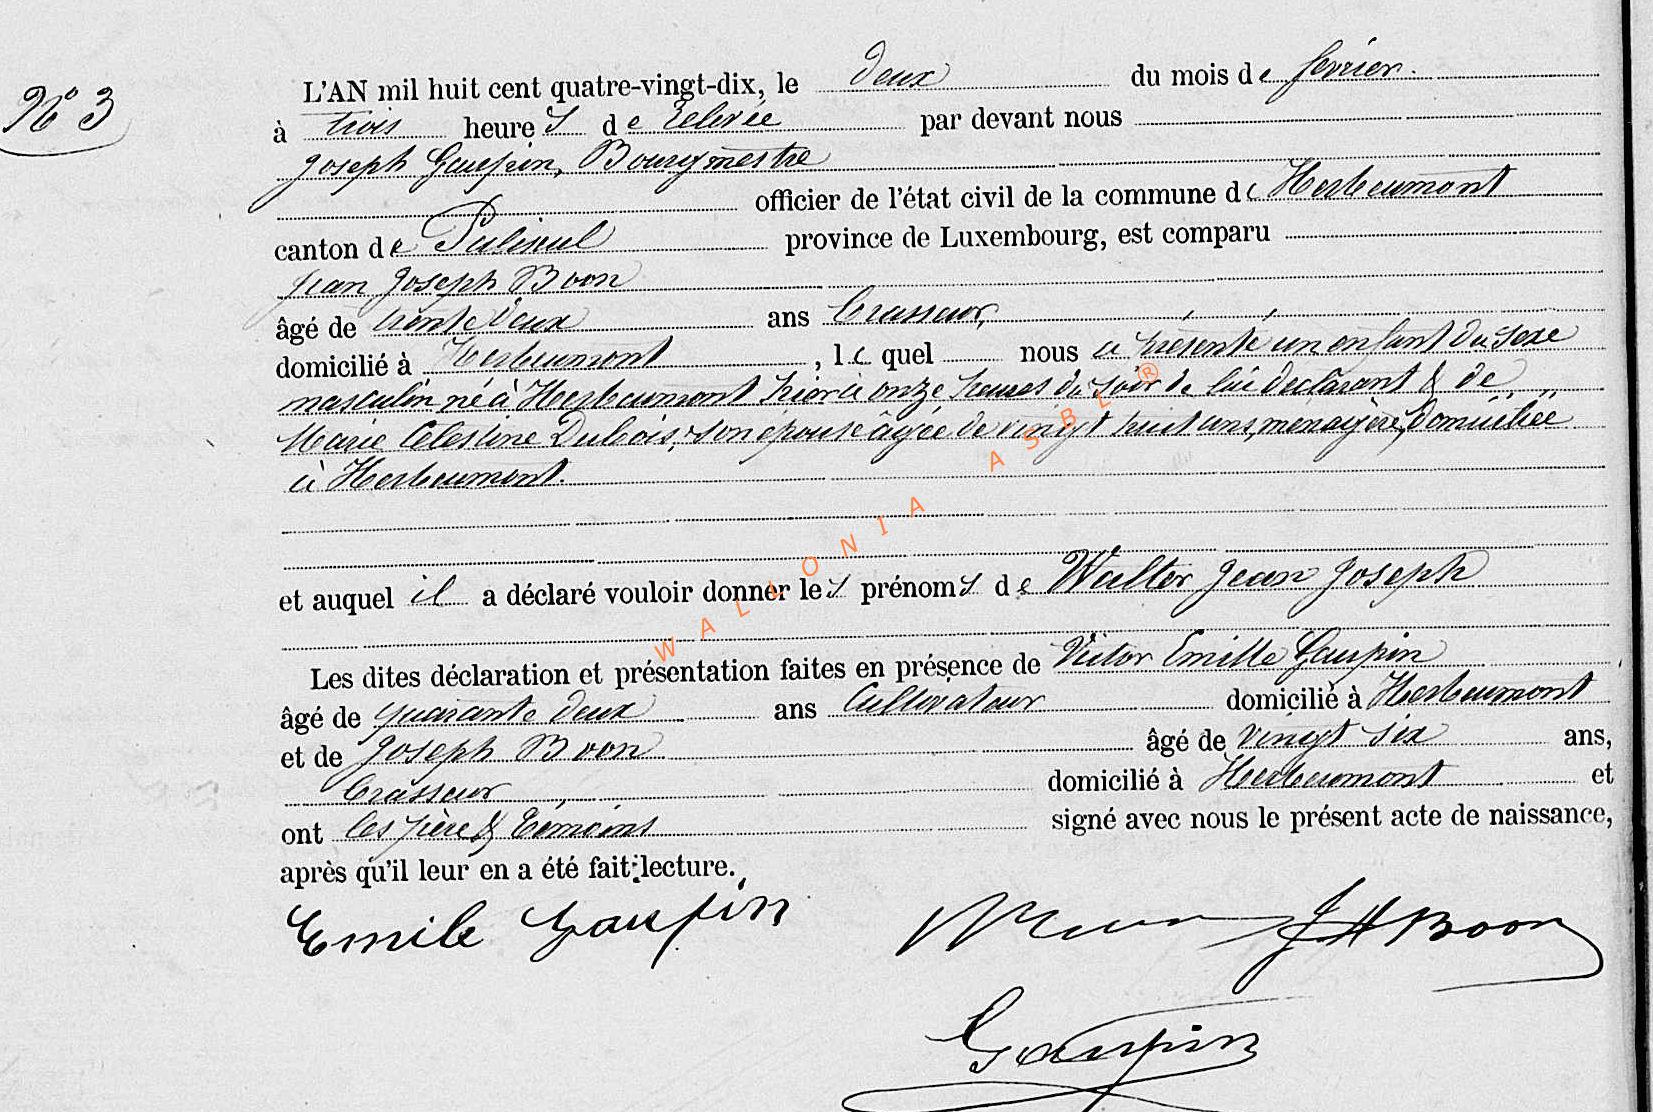 N° 3
L'AN mil huit cent quatre-vingt-dix, le deux du mois de février.
à trois heures de relevée par devant nous
Joseph Gaupin, Bourgmestre
officier de l'état civil de la commune de Herbeumont
canton de Paliseul province de Luxembourg, est comparu
Jean Joseph Boon
âgé de trente deux ans brasseur,
domicilié à Herbeumont, le quel nous a présenté un enfant du sexe
masculin né à Herbeumont hier à onze heures du soir de lui déclarant & de
Marie Célestine Dubois, son épouse âgée de vingt huit ans, ménagère, domiciliée
à Herbeumont.
et auquel il a déclaré vouloir donner les prénoms de Walter Jean Joseph
Les dites déclaration et présentation faites en présence de Victor Emille Gaupin
âgé de quarante deux ans Cultivateur domicilié à Herbeumont
et de Joseph Boon âgé de vingt six ans,
brasseur domicilié à Herbeumont et
ont les père & témoins signé avec nous le présent acte de naissance,
après qu'il leur en a été fait lecture.
Emile Gaupin JH Boon
Gaupin
WALLONIA ASBL ®